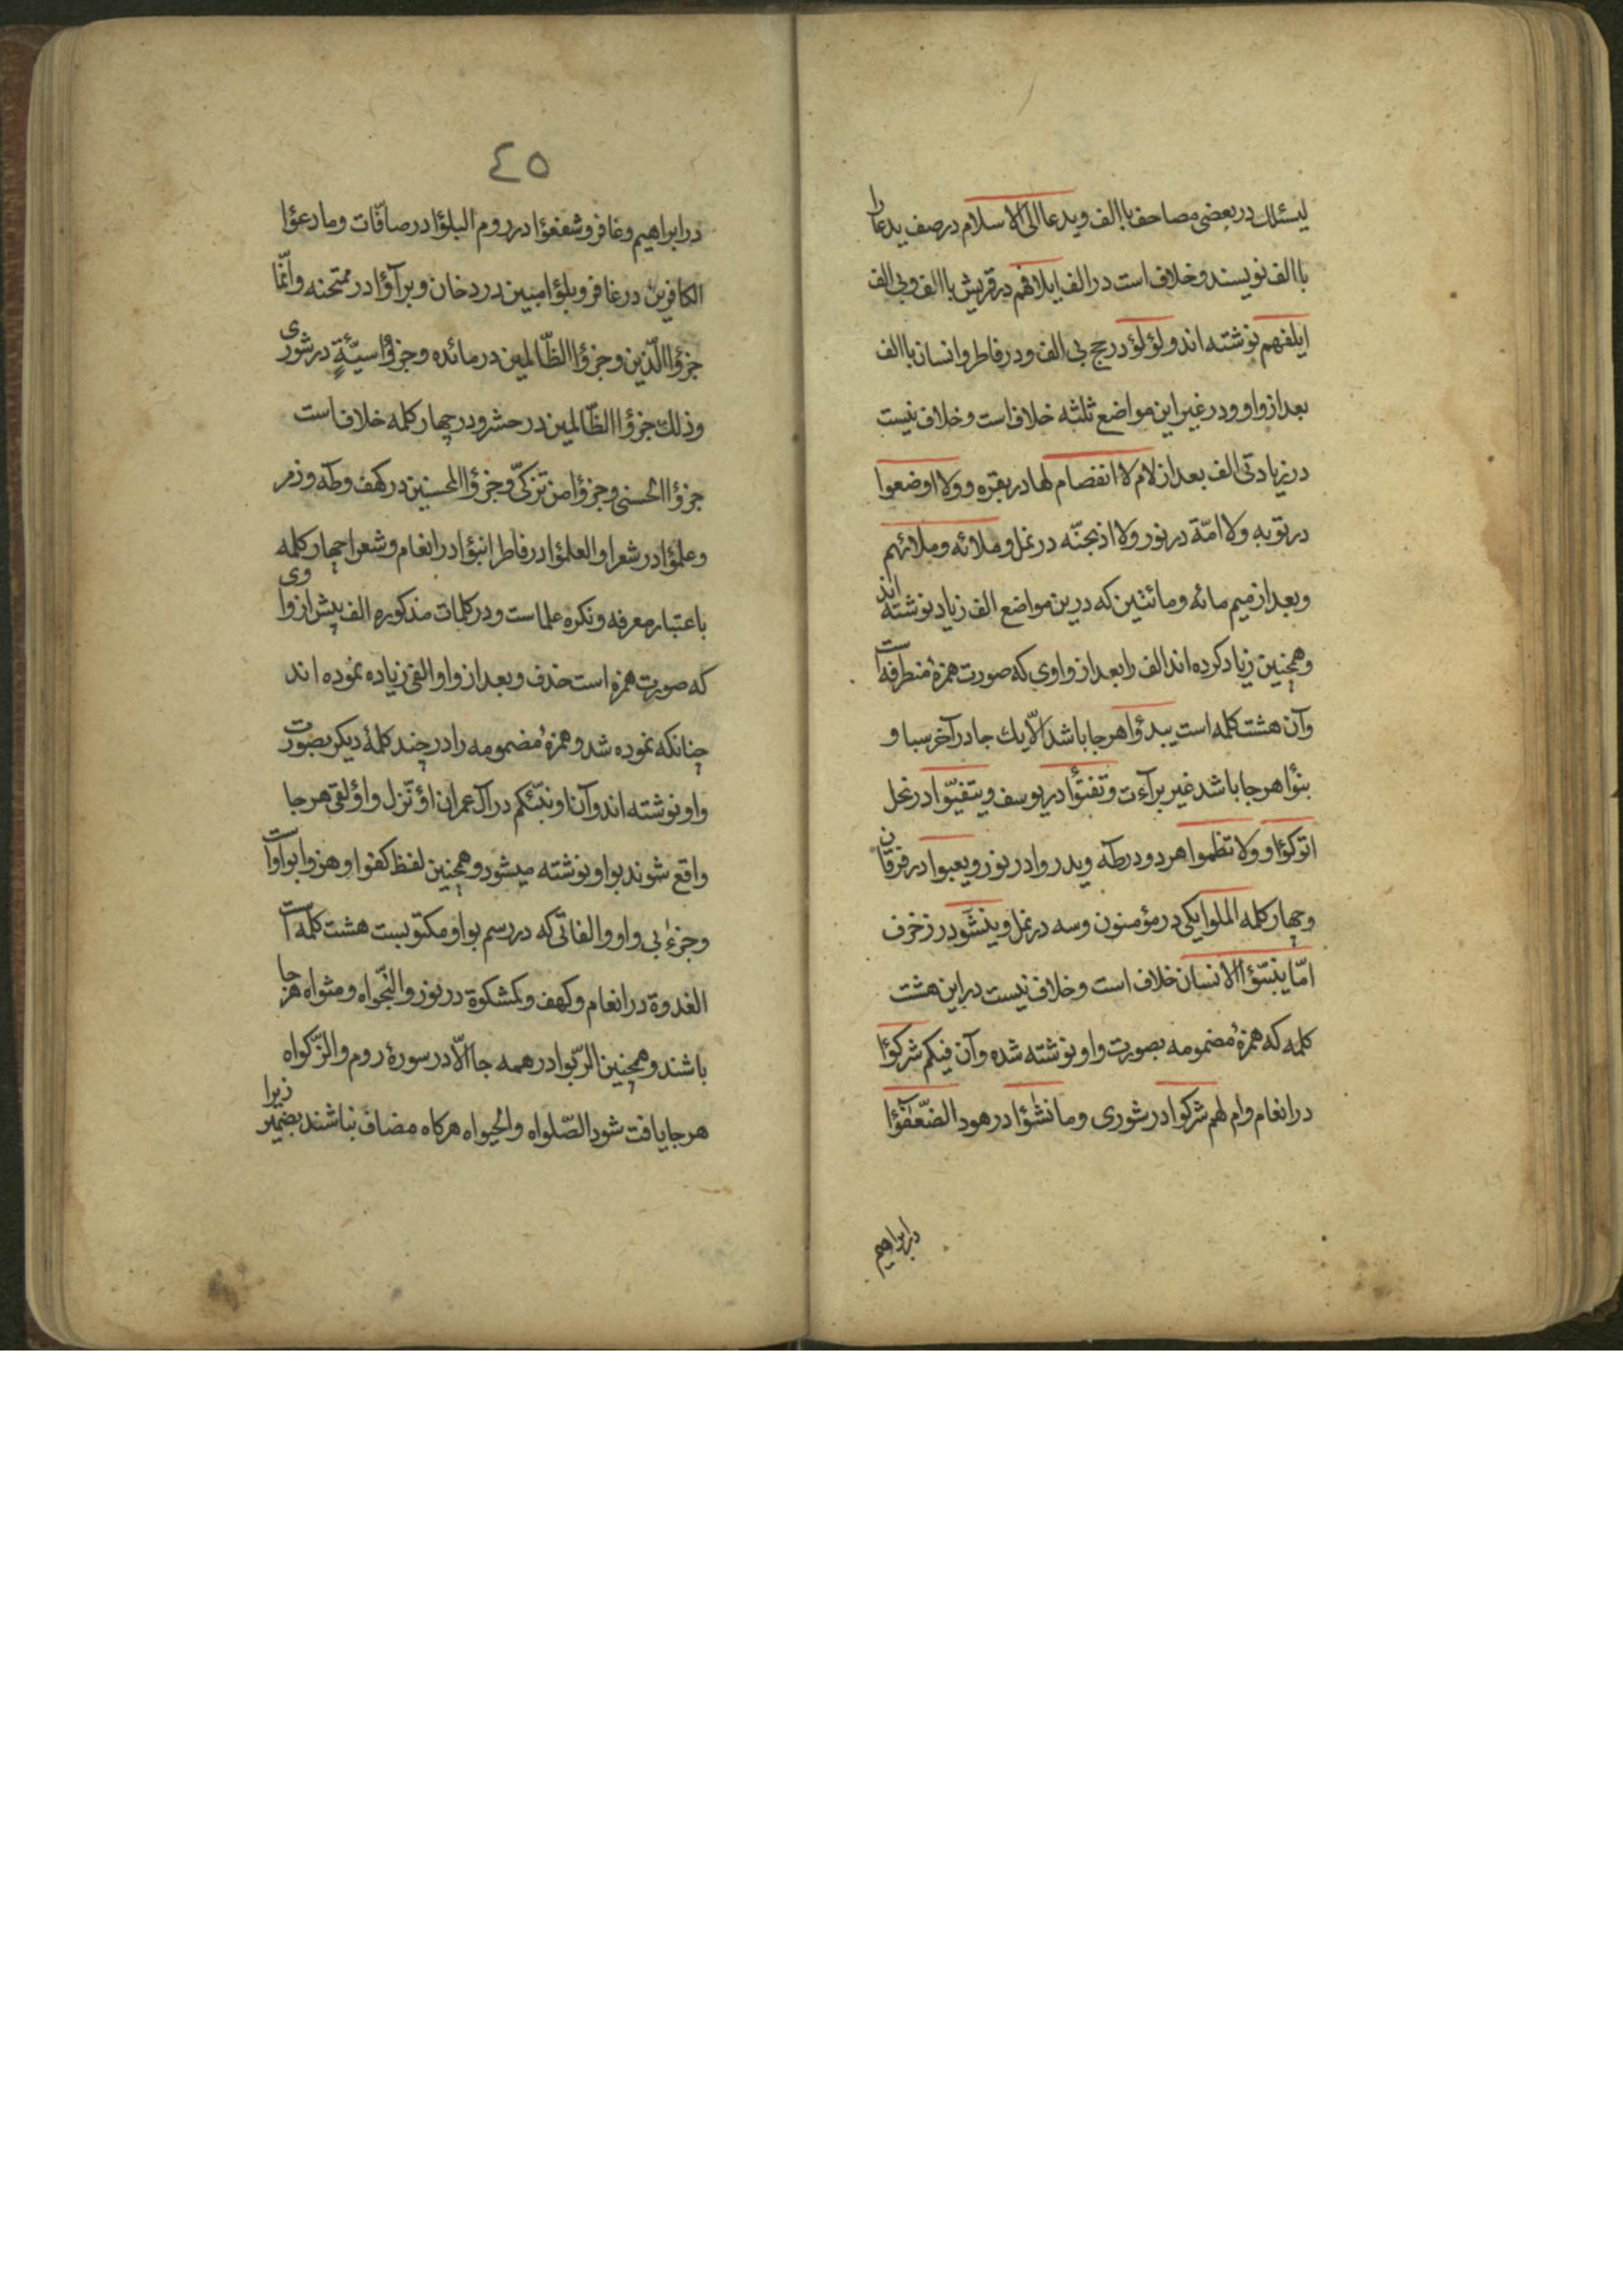 لیسئلك در بعضی مصاحف باالف و یدعا الی الاسلام در صف یدعا را
باالف نویسند و خلاف است در الف ایلافهم در قریش باالف و بی الف
ایلفهم نوشته اند و لؤلؤ در حج بی الف و در فاطر و انسان باالف
بعد از واو و در غیر این مواضع ثلثه خلاف است و خلاف نیست
در زیادتی الف بعد از لام لا انفصام لها در بقره و ولا اوضعوا
در توبه ولا امّة در نور ولا اذبحنّه در نمل و ملائه و ملائهم
و بعد از میم مائه و مائتین که درین مواضع الف زیاد نوشته اند
و همچنین زیاد کرده اند الف را بعد از واوی که صورت همزهٔ متطرفه است
و آن هشت کلمه است یبدؤا هر جا باشد الّا یك جا در آخر سبا و
بنؤا هر جا باشد غیر برآءت و تفتؤا در یوسف و یتفیّوا در نحل
اتوکؤا و ولا تظموا هر دو در طه و یدروا در نور و یعبوا در فرقان
و چهار کلمه الملوا یکی در مؤمنون و سه در نمل و ینشّو در زخرف
امّا ینبّؤا الانسان خلاف است و خلاف نیست در این هشت
کلمه که همزهٔ مضمومه بصورت واو نوشته شده و آن فیکم شرکؤا
در انعام و ام لهم شرکوا در شوری و ما نشؤا در هود الضّعفؤا
در ابراهیم
٤٥
در ابراهیم و غافر و شفعؤا در روم البلؤا در صافّات و ما دعؤا
الکافرین در غافر و بلؤا مبین در دخان و برآؤا در ممتحنه و انّما
جزؤا الّذین و جزؤا الظّالمین در مائده و جزؤا سیّئةٍ در شوری
و ذلك جزؤا الظّالمین در حشر و در چهار کلمه خلاف است
جزؤا الحسنی و جزؤا من تزکّی و جزؤا المحسنین در کهف و طه و زمر
و علمؤا در شعرا و العلمؤا در فاطر انبؤا در انعام و شعرا چهار کلمه
باعتبار معرفه و نکره علما ست و در کلمات مذکوره الف پیش از واوی
که صورت همزه است حذف و بعد از واو الفی زیاده نموده اند
چنانکه نموده شد و همزهٔ مضمومه را در چند کلمهٔ دیکر بصورت
واو نوشته اند و آن اونبّئکم در آل عمران اؤنّزل و اؤلقی هر جا
واقع شوند بواو نوشته میشود و همچنین لفظ کفوا و هزوا بواو است
و جزءٰ بی واو و الفاتی که در رسم بواو مکتوبست هشت کلمه است
الغدوة در انعام و کهف و کمشکوة در نور و النّجواه و مثواه هر جا
باشند و همچنین الربّوا در همه جا الّا در سورهٔ روم و الزّکواه
هر جا یافت شود الصّلواه و الحیواه هرکاه مضاف نباشند بضمیر زیرا